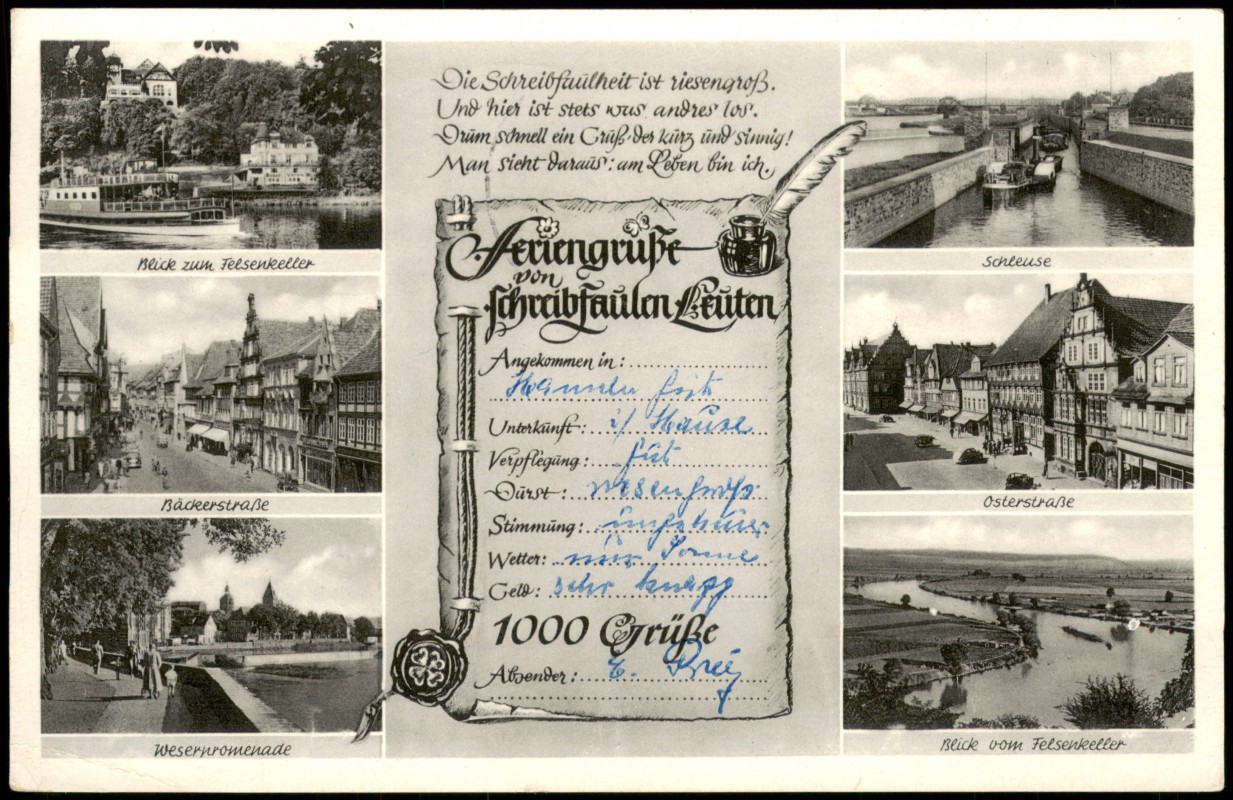 Die Schreibfaulheit ist riesengroß.
Und hier ist stets was andres los.
Drum schnell ein Gruß der kurz und sinnig!
Man sieht daraus: am Leben bin ich.
Feriengrüße
von
schreibfaulen Leuten
Angekommen in:
Hameln gut
Unterkunft: i/ Hause
Verpflegung: gut
Durst: riesengroß
Stimmung: ungeheuer
Wetter: nur Sonne
Geld: sehr knapp
1000 Grüße
Absender: E.
Blick zum Felsenkeller
Bäckerstraße
Weserpromenade
Schleuse
Osterstraße
Blick vom Felsenkeller